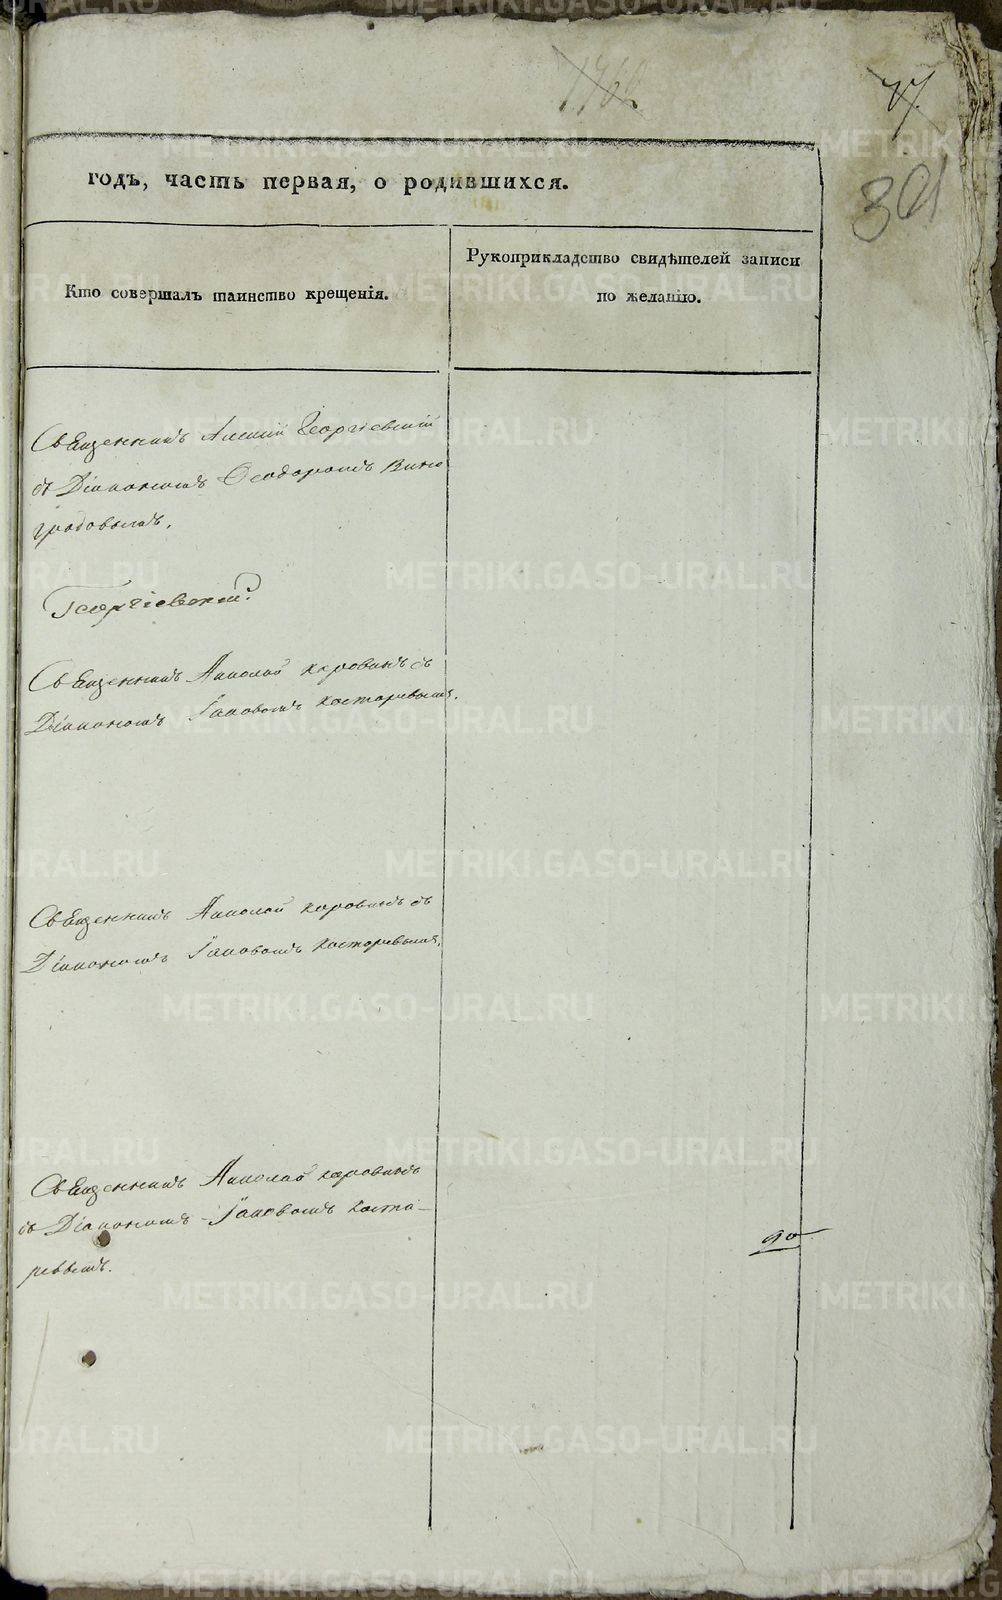 77.
391
годъ, часть первая, о родившихся.
Кто совершалъ таинство крещенія.
Рукоприкладство свидѣтелей записи
по желанію.
Священникъ Алексій Георгіевскій
съ Діакономъ Ѳеодоромъ Вино
градовымъ.
Георгіевскій
Священникъ Николай Коровинъ съ
Діакономъ Іаковомъ Костаревымъ.
Священникъ Николай Коровинъ съ
Діакономъ Іаковомъ Костаревымъ.
Священникъ Николай Коровинъ
съ Діакономъ Іаковомъ Коста-
ревымъ.
METRIKI.GASO-URAL.RU